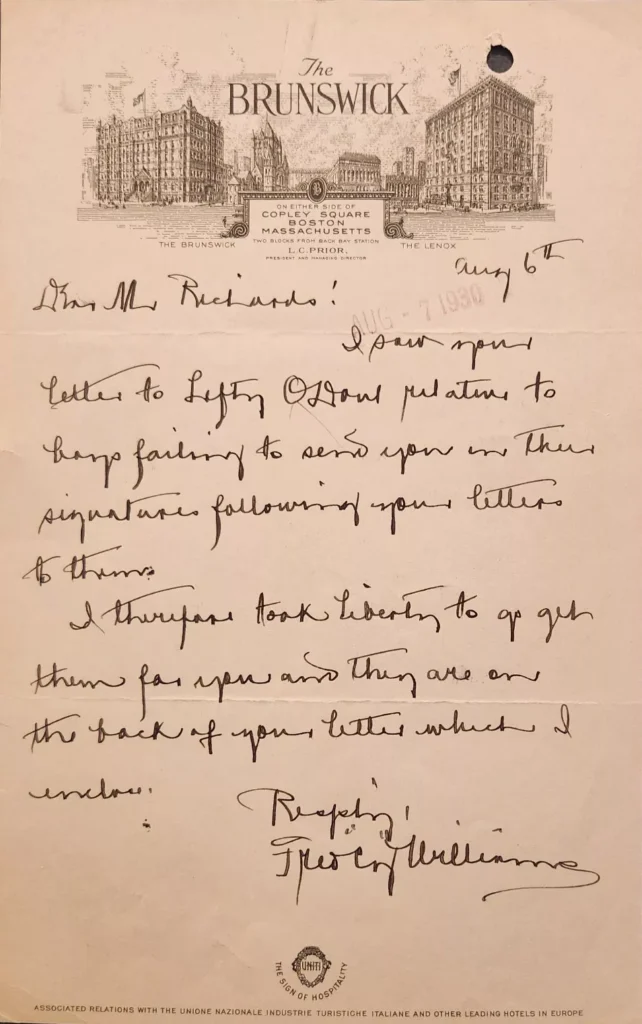 The
BRUNSWICK
ON EITHER SIDE OF
COPLEY SQUARE
BOSTON
MASSACHUSETTS
TWO BLOCKS FROM BACK BAY STATION
L.C. PRIOR.
PRESIDENT AND MANAGING DIRECTOR
THE BRUNSWICK
THE LENOX
Aug 6th
Dear Mr Richards!
AUG - 7 1930
I saw your
letter to Lefty O'Doul relative to
boys failing to send you in their
signatures following your letters
to them.
I therefore took liberty to go get
them for you and they are on
the back of your letter which I
enclose.
Respfly,
Fred "Cy" Williams
UNITI
THE SIGN OF HOSPITALITY
ASSOCIATED RELATIONS WITH THE UNIONE NAZIONALE INDUSTRIE TURISTICHE ITALIANE AND OTHER LEADING HOTELS IN EUROPE